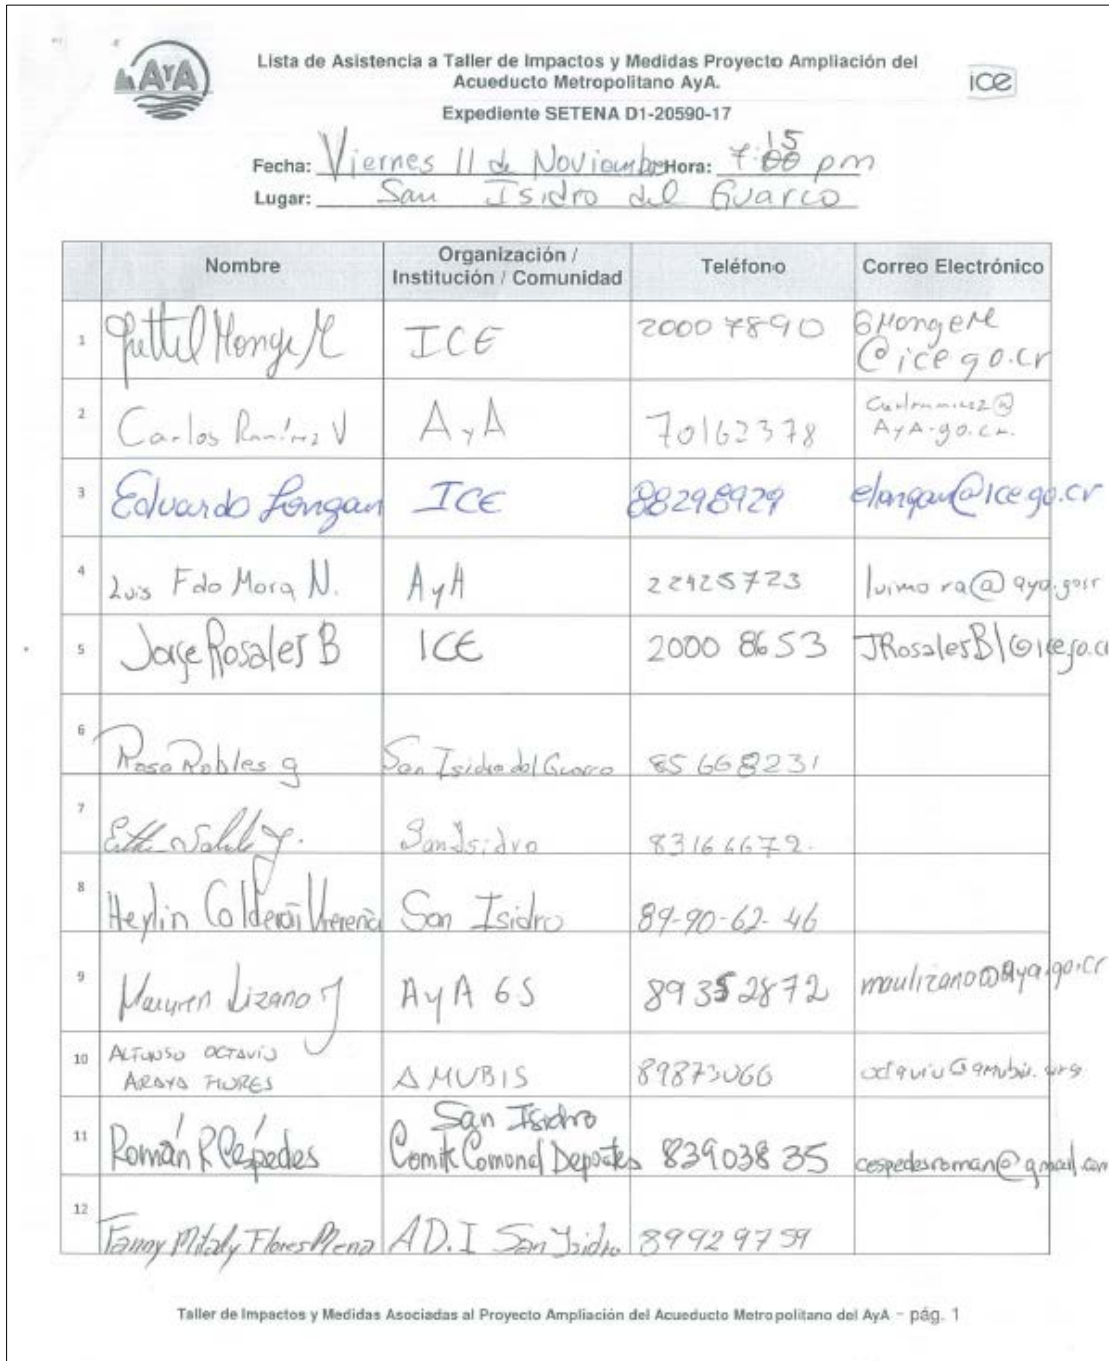 AyA
Lista de Asistencia a Taller de Impactos y Medidas Proyecto Ampliación del
Acueducto Metropolitano AyA.
ice
Expediente SETENA D1-20590-17
Fecha: Viernes 11 de Noviembre Hora: 7:15 pm
Lugar: San Isidro del Guarco
Nombre Organización / Institución / Comunidad Teléfono Correo Electrónico
1 Monge M ICE 2000 7890 GMongeM
@ice go.cr
2 Carlos Ramírez V AyA 70162378
AyA.go.cr.
3 Eduardo Longan ICE 88298929 elongan@ice go.cr
4 Luis Fdo Mora N. AyA 22425723 luimora@aya.go.cr
5 Jorge Rosales B ICE 2000 8653 JRosalesB1@ice.go.cr
6 Rosa Robles g San Isidro del Guarco 85668231
7 San Isidro 83166672.
8 Heylin Calderón San Isidro 89-90-62-46
9 Lizano AyA GS 89352872 maulizano@aya.go.cr
10 ALFONSO OCTAVIO
ARAYA FLORES AMUBIS 89873066 octavio@amubis.org
11 Román R Céspedes San Isidro
Comite Comonal Deportes 83903835 cespedesroman@gmail.com
12 Fanny Flores Mena A.D.I San Isidro 89929759
Taller de Impactos y Medidas Asociadas al Proyecto Ampliación del Acueducto Metropolitano del AyA - pág. 1